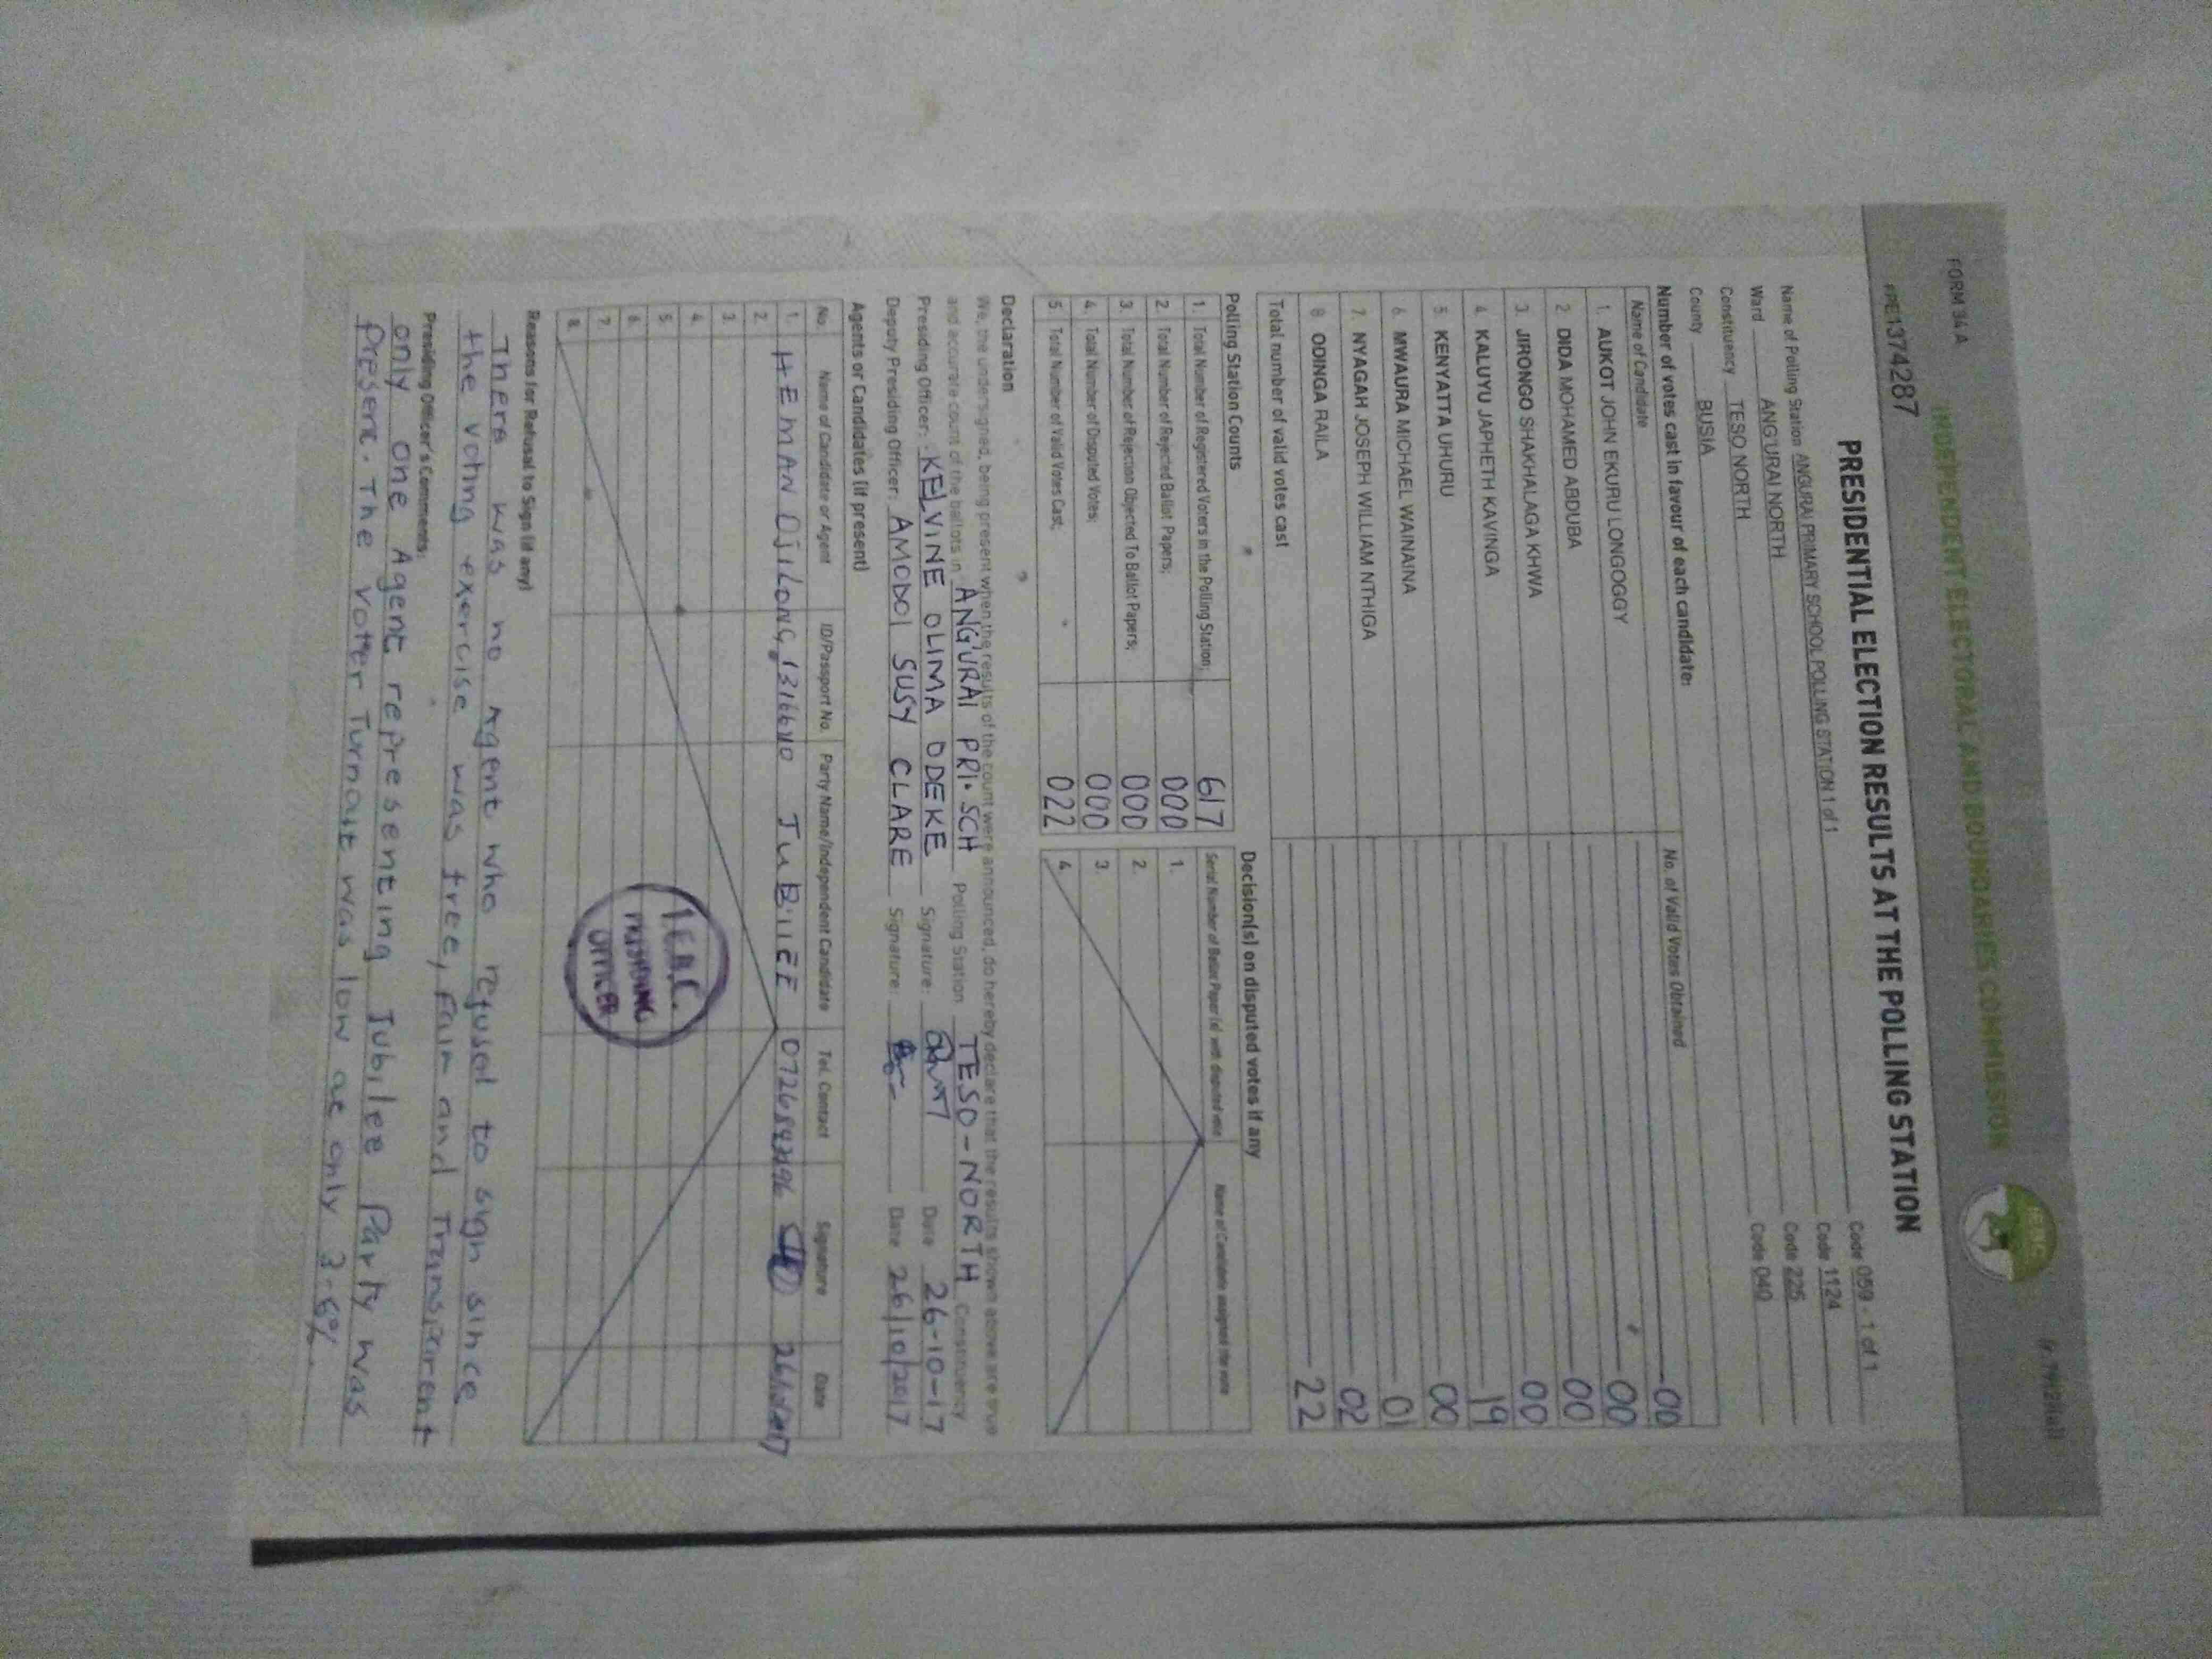 FORM 34A
INDEPENDENT ELECTORAL AND BOUNDARIES COMMISSION
IEBC
PRE1374287
PRESIDENTIAL ELECTION RESULTS AT THE POLLING STATION
Name of Polling Station ANGURAI PRIMARY SCHOOL POLLING STATION 1 of 1 Code 059 - 1 of 1
Ward ANG'URAI NORTH Code 1124
Constituency TESO NORTH Code 225
County BUSIA Code 040
Number of votes cast in favour of each candidate:
Name of Candidate No. of Valid Votes Obtained
1. AUKOT JOHN EKURU LONGOGGY 00
2. DIDA MOHAMED ABDUBA 00
3. JIRONGO SHAKHALAGA KHWA 00
4. KALUYU JAPHETH KAVINGA 00
5. KENYATTA UHURU 19
6. MWAURA MICHAEL WAINAINA 00
7. NYAGAH JOSEPH WILLIAM NTHIGA 01
8. ODINGA RAILA 02
Total number of valid votes cast 22
Polling Station Counts Decision(s) on disputed votes if any
1. Total Number of Registered Voters in the Polling Station; 617
2. Total Number of Rejected Ballot Papers; 000
3. Total Number of Rejection Objected To Ballot Papers; 000
4. Total Number of Disputed Votes; 000
5. Total Number of Valid Votes Cast; 022
Serial Number of Ballot Paper (s) with disputed vote Name of Candidate assigned the vote
1.
2.
3.
4.
Declaration
We, the undersigned, being present when the results of the count were announced, do hereby declare that the results shown above are true
and accurate count of the ballots in ANG'URAI PRI. SCH Polling Station TESO-NORTH Constituency
Presiding Officer: KELVINE OLIMA ODEKE Signature: Date 26-10-17
Deputy Presiding Officer: AMODOI SUSY CLARE Signature: Date 26/10/2017
Agents or Candidates (if present)
No Name of Candidate or Agent ID/Passport No. Party Name/Independent Candidate Tel. Contact Signature Date
1. HEMAN OJILONG JUBILEE
2.
3.
4.
5.
6.
7.
8.
I.E.B.C.
PRESIDING
OFFICER
Reasons for Refusal to Sign (if any)
There was no Agent who refused to sign since
the voting exercise was free, Fair and Transparent
Presiding Officer's Comments:
only one Agent representing Jubilee Party was
Present. The Voter Turnout was low at only 3.6%